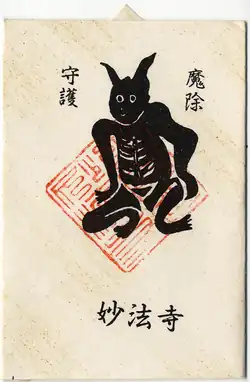 魔除
守護
妙法寺